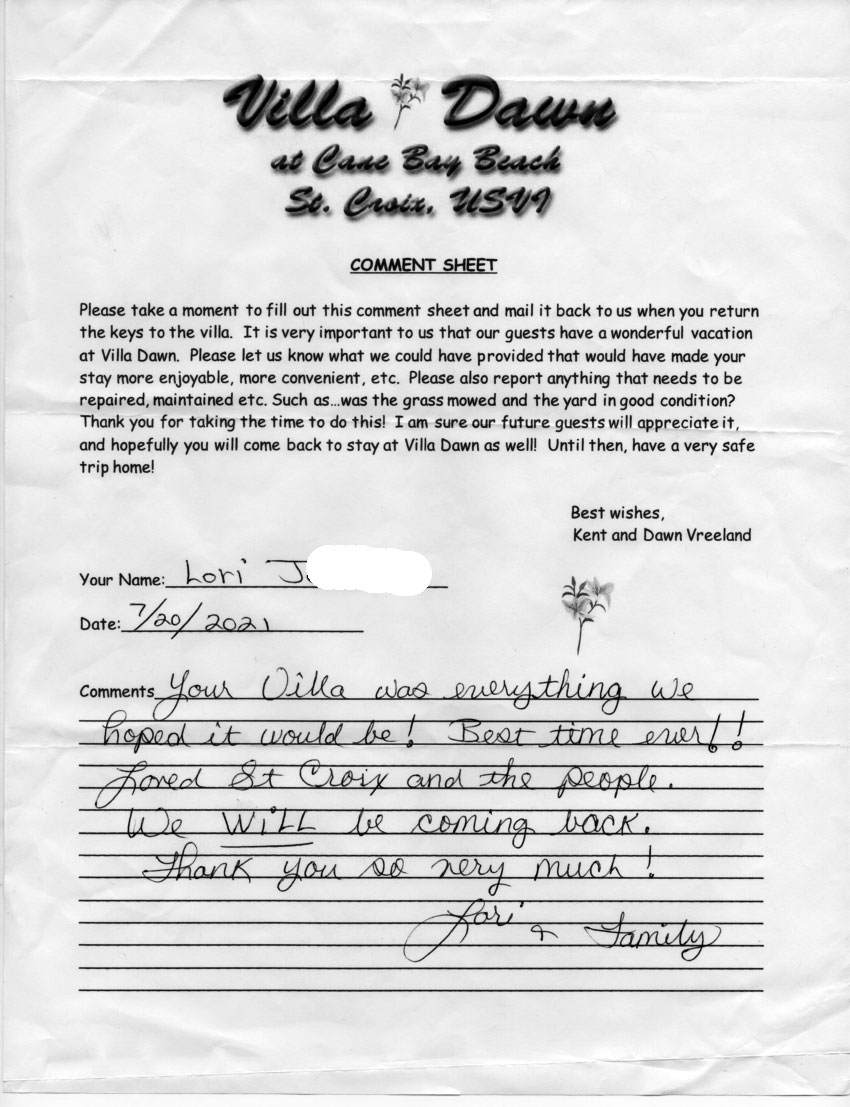 Villa Dawn
at Cane Bay Beach
St. Croix, USVI
COMMENT SHEET
Please take a moment to fill out this comment sheet and mail it back to us when you return
the keys to the villa. It is very important to us that our guests have a wonderful vacation
at Villa Dawn. Please let us know what we could have provided that would have made your
stay more enjoyable, more convenient, etc. Please also report anything that needs to be
repaired, maintained etc. Such as…was the grass mowed and the yard in good condition?
Thank you for taking the time to do this! I am sure our future guests will appreciate it,
and hopefully you will come back to stay at Villa Dawn as well! Until then, have a very safe
trip home!
Best wishes,
Kent and Dawn Vreeland
Your Name: Lori J
Date: 7/20/2021
Comments Your Villa was everything we
hoped it would be! Best time ever!!
Loved St Croix and the people.
We WILL be coming back.
Thank you so very much!
Lori & Family